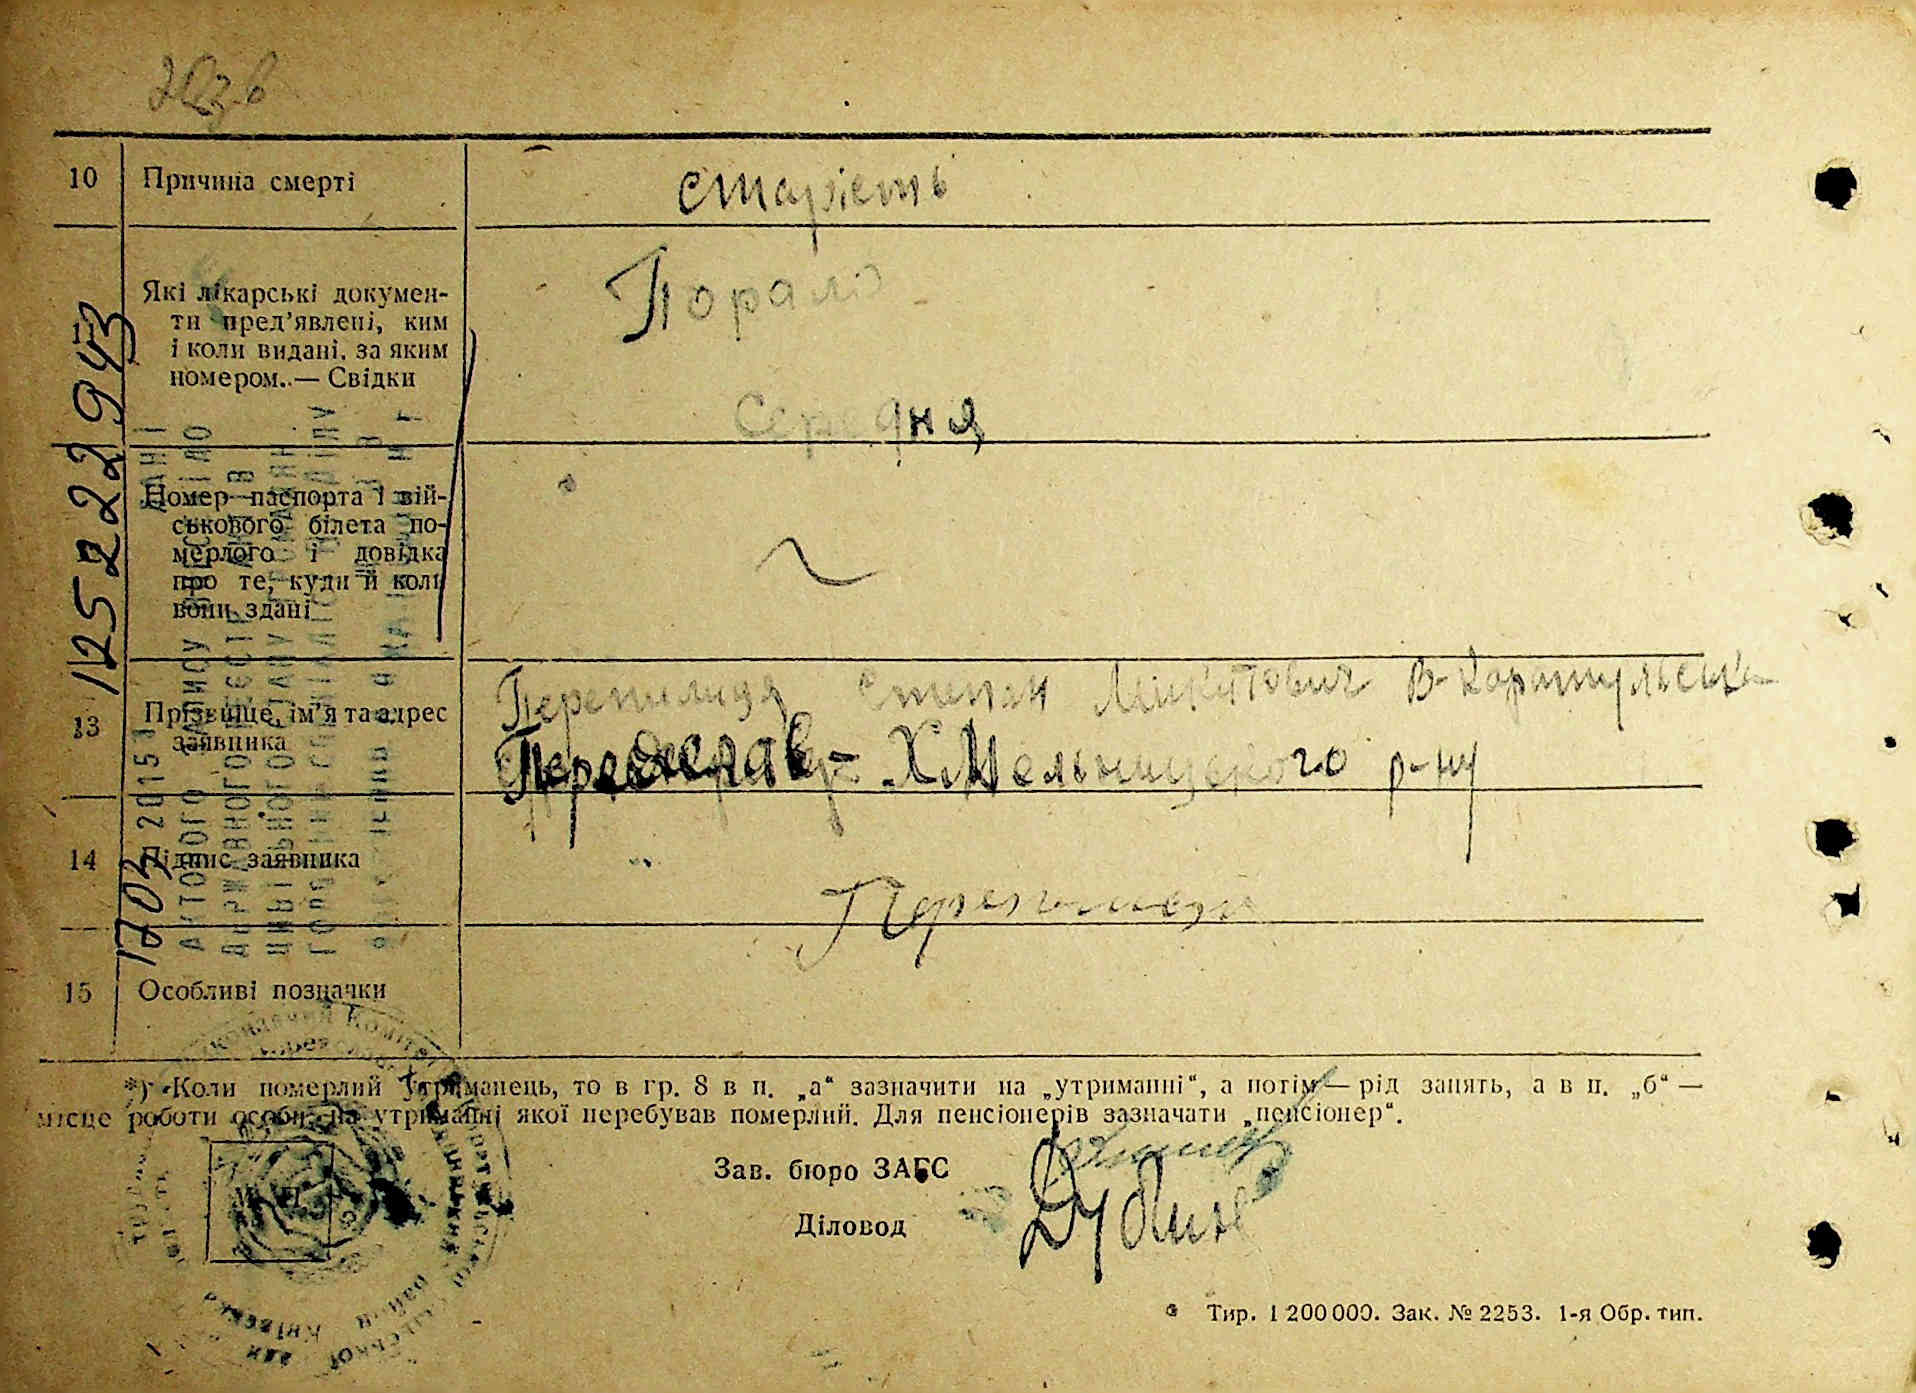 10 Причина смерті старість
Які лікарські докумен-
ти пред'явлені, ким
і коли видані, за яким
номером. — Свідки
Середня
Номер паспорта і вій-
ськового білета по-
мерлого і довідка
про те, куди й коли
вони здані
13 Прізвище, ім'я та адрес
заявника
Перепелиця Степан Микитович В-Каратульська
Переяслав-Хмельницького р-ну
14 Підпис заявника
15 Особливі позначки
*) Коли померлий утриманець, то в гр. 8 в п. „а“ зазначити на „утриманні“, а потім — рід занять, а в п. „б“ —
місце роботи особи, на утриманні якої перебував померлий. Для пенсіонерів зазначати „пенсіонер“.
Зав. бюро ЗАГС
Діловод
Тир. 1 200 000. Зак. № 2253. 1-я Обр. тип.
125222943
1703 2015
АКТОВОГО ЗАПИСУ ВНЕСЕНО
ДЕРЖАВНОГО РЕЄСТРУ АКТІВ
ЦИВІЛЬНОГО СТАНУ ГРОМАДЯН